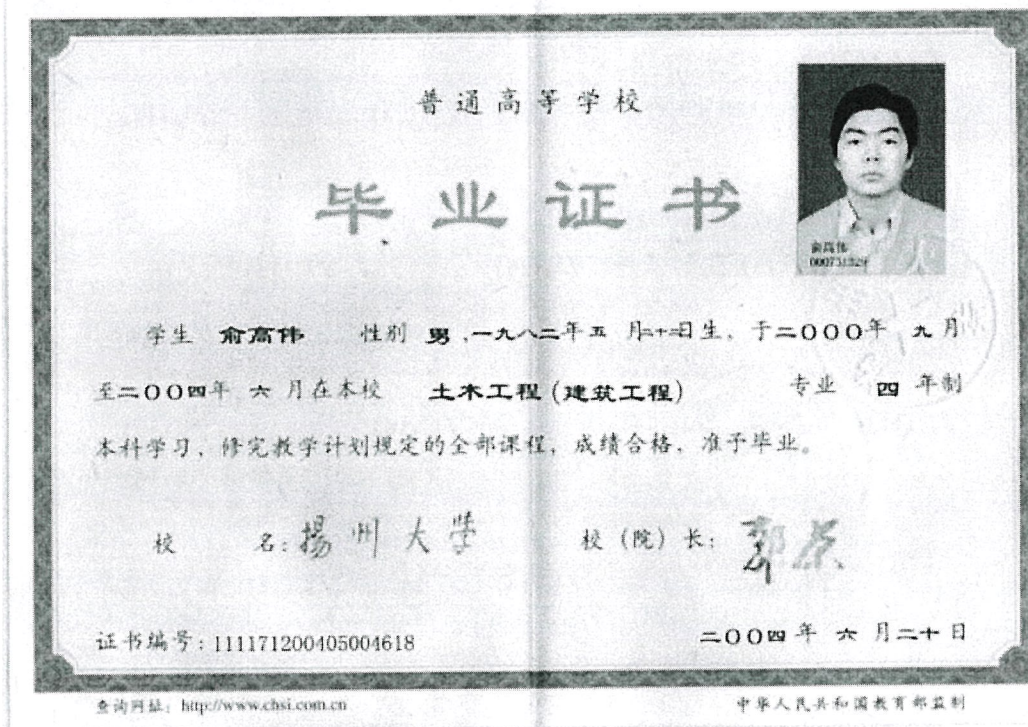 普通高等学校
毕业证书
俞高伟
学生 俞高伟 性别 男,一九八二年五 月二十二日生,于二〇〇〇年 九月
至二〇〇四年 六 月在本校 土木工程(建筑工程) 专业 四 年制
本科学习,修完教学计划规定的全部课程,成绩合格,准予毕业。
校 名:揚州大學 校(院)长:
证书编号:111171200405004618
二〇〇四年 六 月二十日
查询网址:http://www.chsi.com.cn
中华人民共和国教育部监制